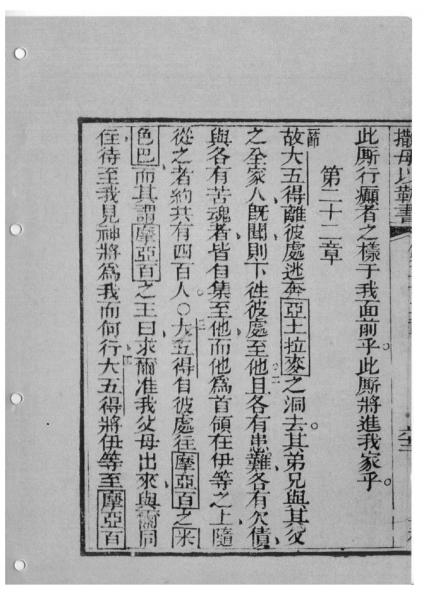 撒母以勒書
此厮行癲者之樣于我面前乎。此厮將進我家乎。
第二十二章
一節故大五得離彼處逃奔亞土拉麥之洞去。其弟兄與其父
之全家人既聞則下徃彼處至他且二各有患難、各有欠債、
與各有苦魂者、皆自集至他、而他為首領在伊等之上、隨
從之者約共有四百人。○三大五得自彼處徃摩亞百之米
色巴、而其謂摩亞百之王曰、求爾准我父母出來、與爾同
住待至我見神將為我而何行。四大五得將伊等至摩亞百